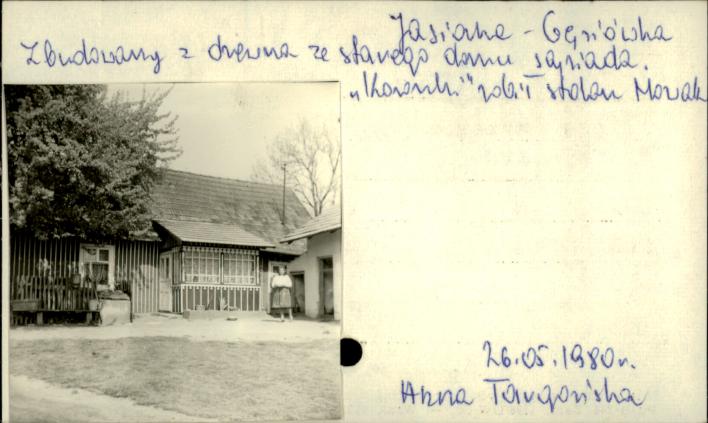 Jasiona - Gęsiówka
Zbudowany z drewna ze starego domu sąsiada.
„Koronki" robił stolarz Nowak
26.05.1980r.
Anna